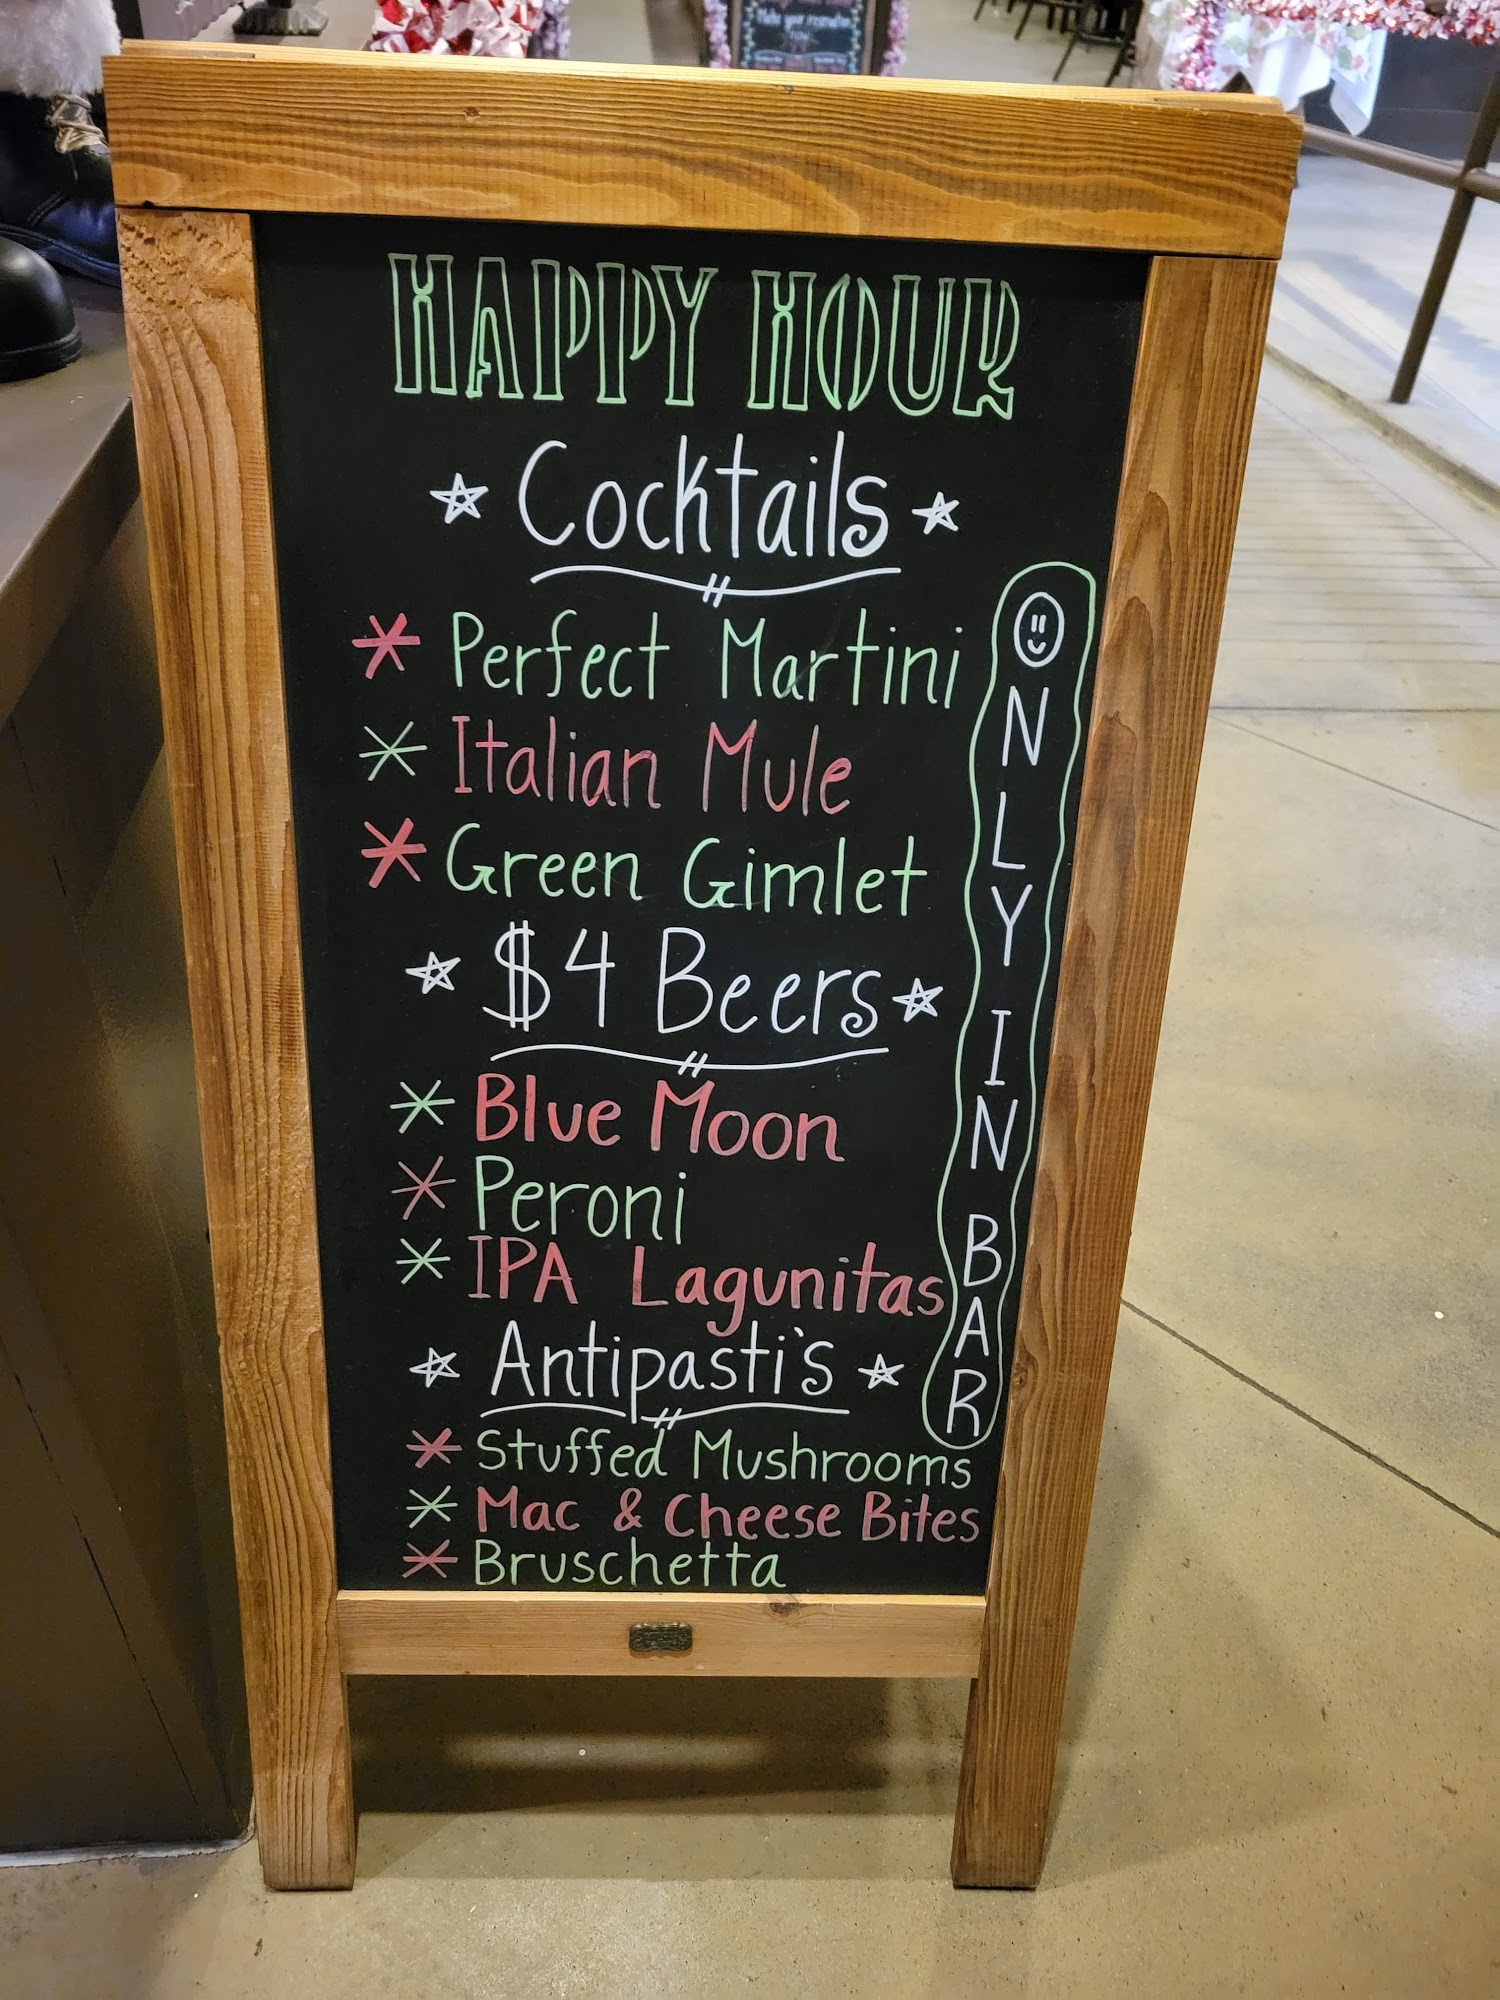 Make your reservation
HAPPY HOUR
Cocktails
Perfect Martini
Italian Mule
Green Gimlet
$4 Beers
Blue Moon
Peroni
IPA Lagunitas
Antipasti's
Stuffed Mushrooms
Mac & Cheese Bites
Bruschetta
ONLY IN BAR